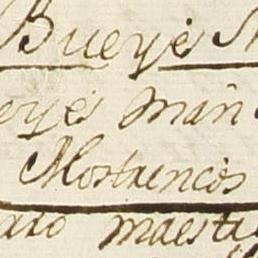 Bueyes
eyes man
Mostrencos
aro maest